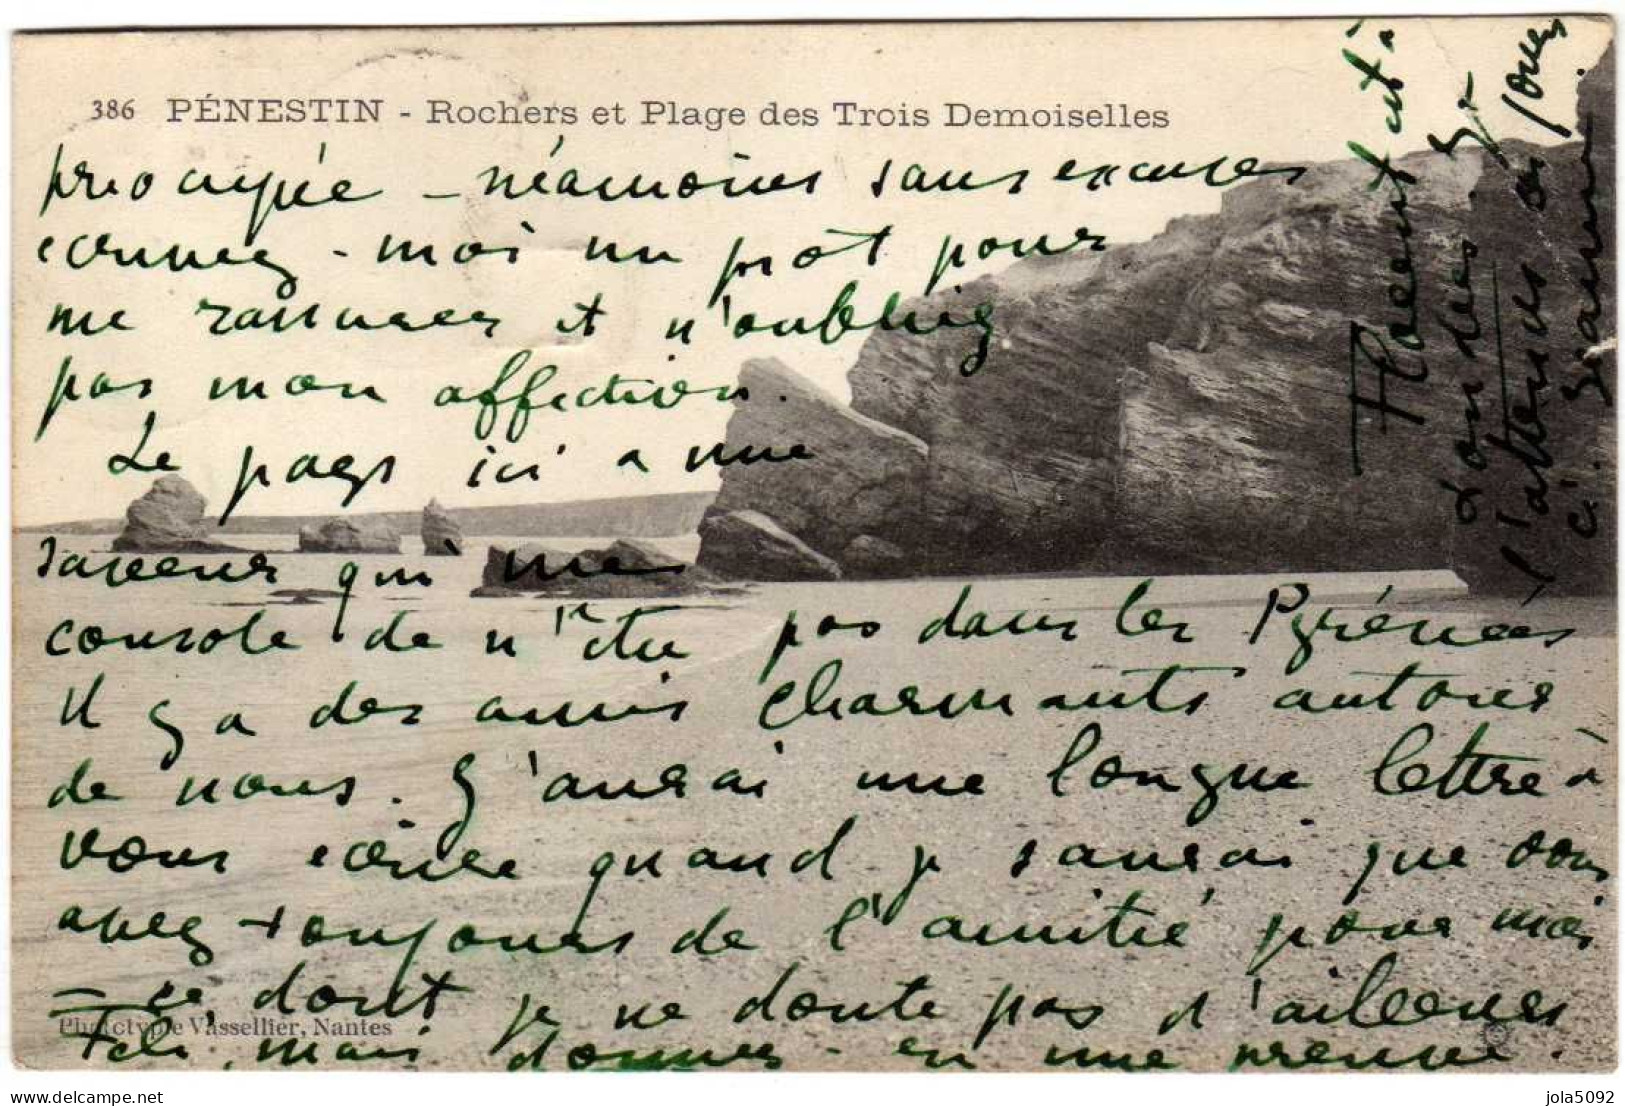 386 PÉNESTIN - Rochers et Plage des Trois Demoiselles
préocupée - néamoins sans excuses
donnez - moi un prêt pour
me rassurer et n'oubliez
pas mon affection.
Le pays ici a une
saveur qui me
console de n'être pas dans les Pyrénées
Il y a des amis charmants autour
de nous. J'aurai une longue lettre à
vous écrire quand je saurai que vous
avez toujours de l'amitié pour moi
- ce dont je ne doute pas d'ailleurs
mais donnez - en une preuve.
Phototypie Vassellier, Nantes
Florent est à
Londres. Je
l'attends
Jeanne
jola5092